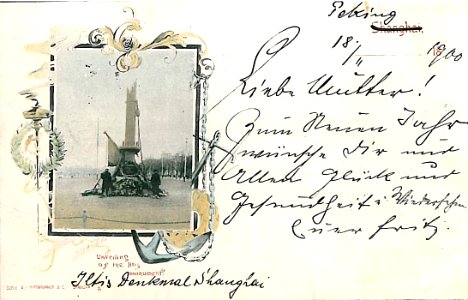 Peking
Shanghai,
18/11 1900
Liebe Mutter!
Zum Neuen Jahr
wünsche Dir und
Allen Glück und
Gesundheit & Wiedersehen
Euer Fritz.
Unveiling
of the Iltis
monument
Iltis Denkmal Shanghai